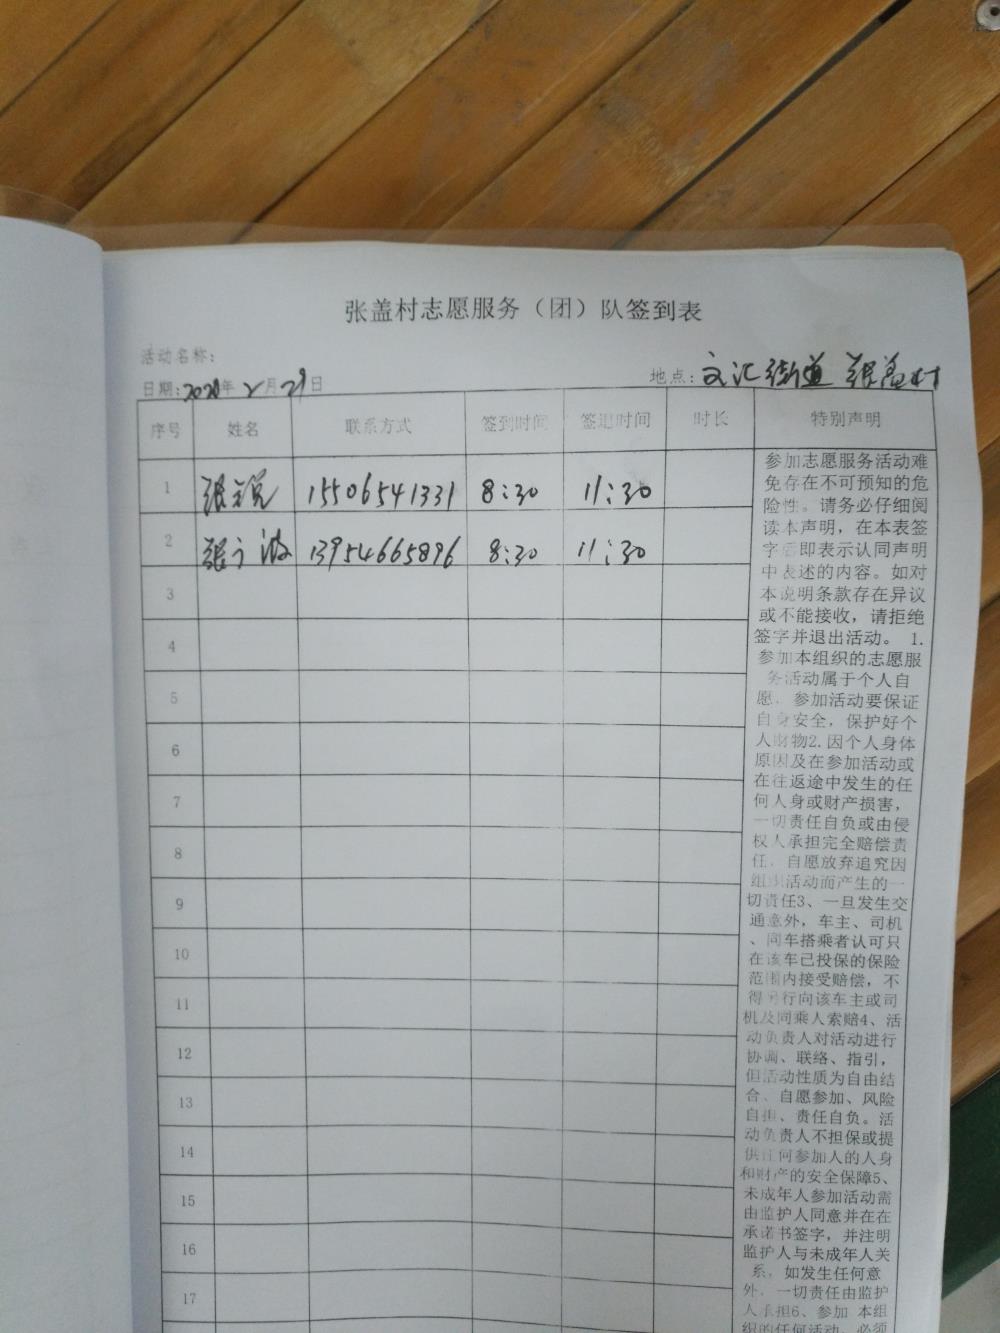 张盖村志愿服务（团）队签到表
活动名称：
日期：2020年2月29日
地点：文汇街道 张盖村
序号 姓名 联系方式 签到时间 签退时间 时长 特别声明
1 15506541331 8:30 11:30
2 13954665896 8:30 11:30
3
4
5
6
7
8
9
10
11
12
13
14
15
16
17
参加志愿服务活动难
免存在不可预知的危
险性。请务必仔细阅
读本声明，在本表签
字后即表示认同声明
中表述的内容。如对
本说明条款存在异议
或不能接收，请拒绝
签字并退出活动。 1.
参加本组织的志愿服
务活动属于个人自
愿，参加活动要保证
自身安全，保护好个
人财物2.因个人身体
原因及在参加活动或
在往返途中发生的任
何人身或财产损害，
一切责任自负或由侵
权人承担完全赔偿责
任，自愿放弃追究因
组织活动而产生的一
切责任3、一旦发生交
通意外，车主、司机
、同车搭乘者认可只
在该车已投保的保险
范围内接受赔偿，不
得另行向该车主或司
机及同乘人索赔4、活
动负责人对活动进行
协调、联络、指引，
但活动性质为自由结
合、自愿参加、风险
自担、责任自负。活
动负责人不担保或提
供任何参加人的人身
和财产的安全保障5、
未成年人参加活动需
由监护人同意并在在
承诺书签字，并注明
监护人与未成年人关
系，如发生任何意
外，一切责任由监护
人承担6、参加 本组
织的任何活动，必须